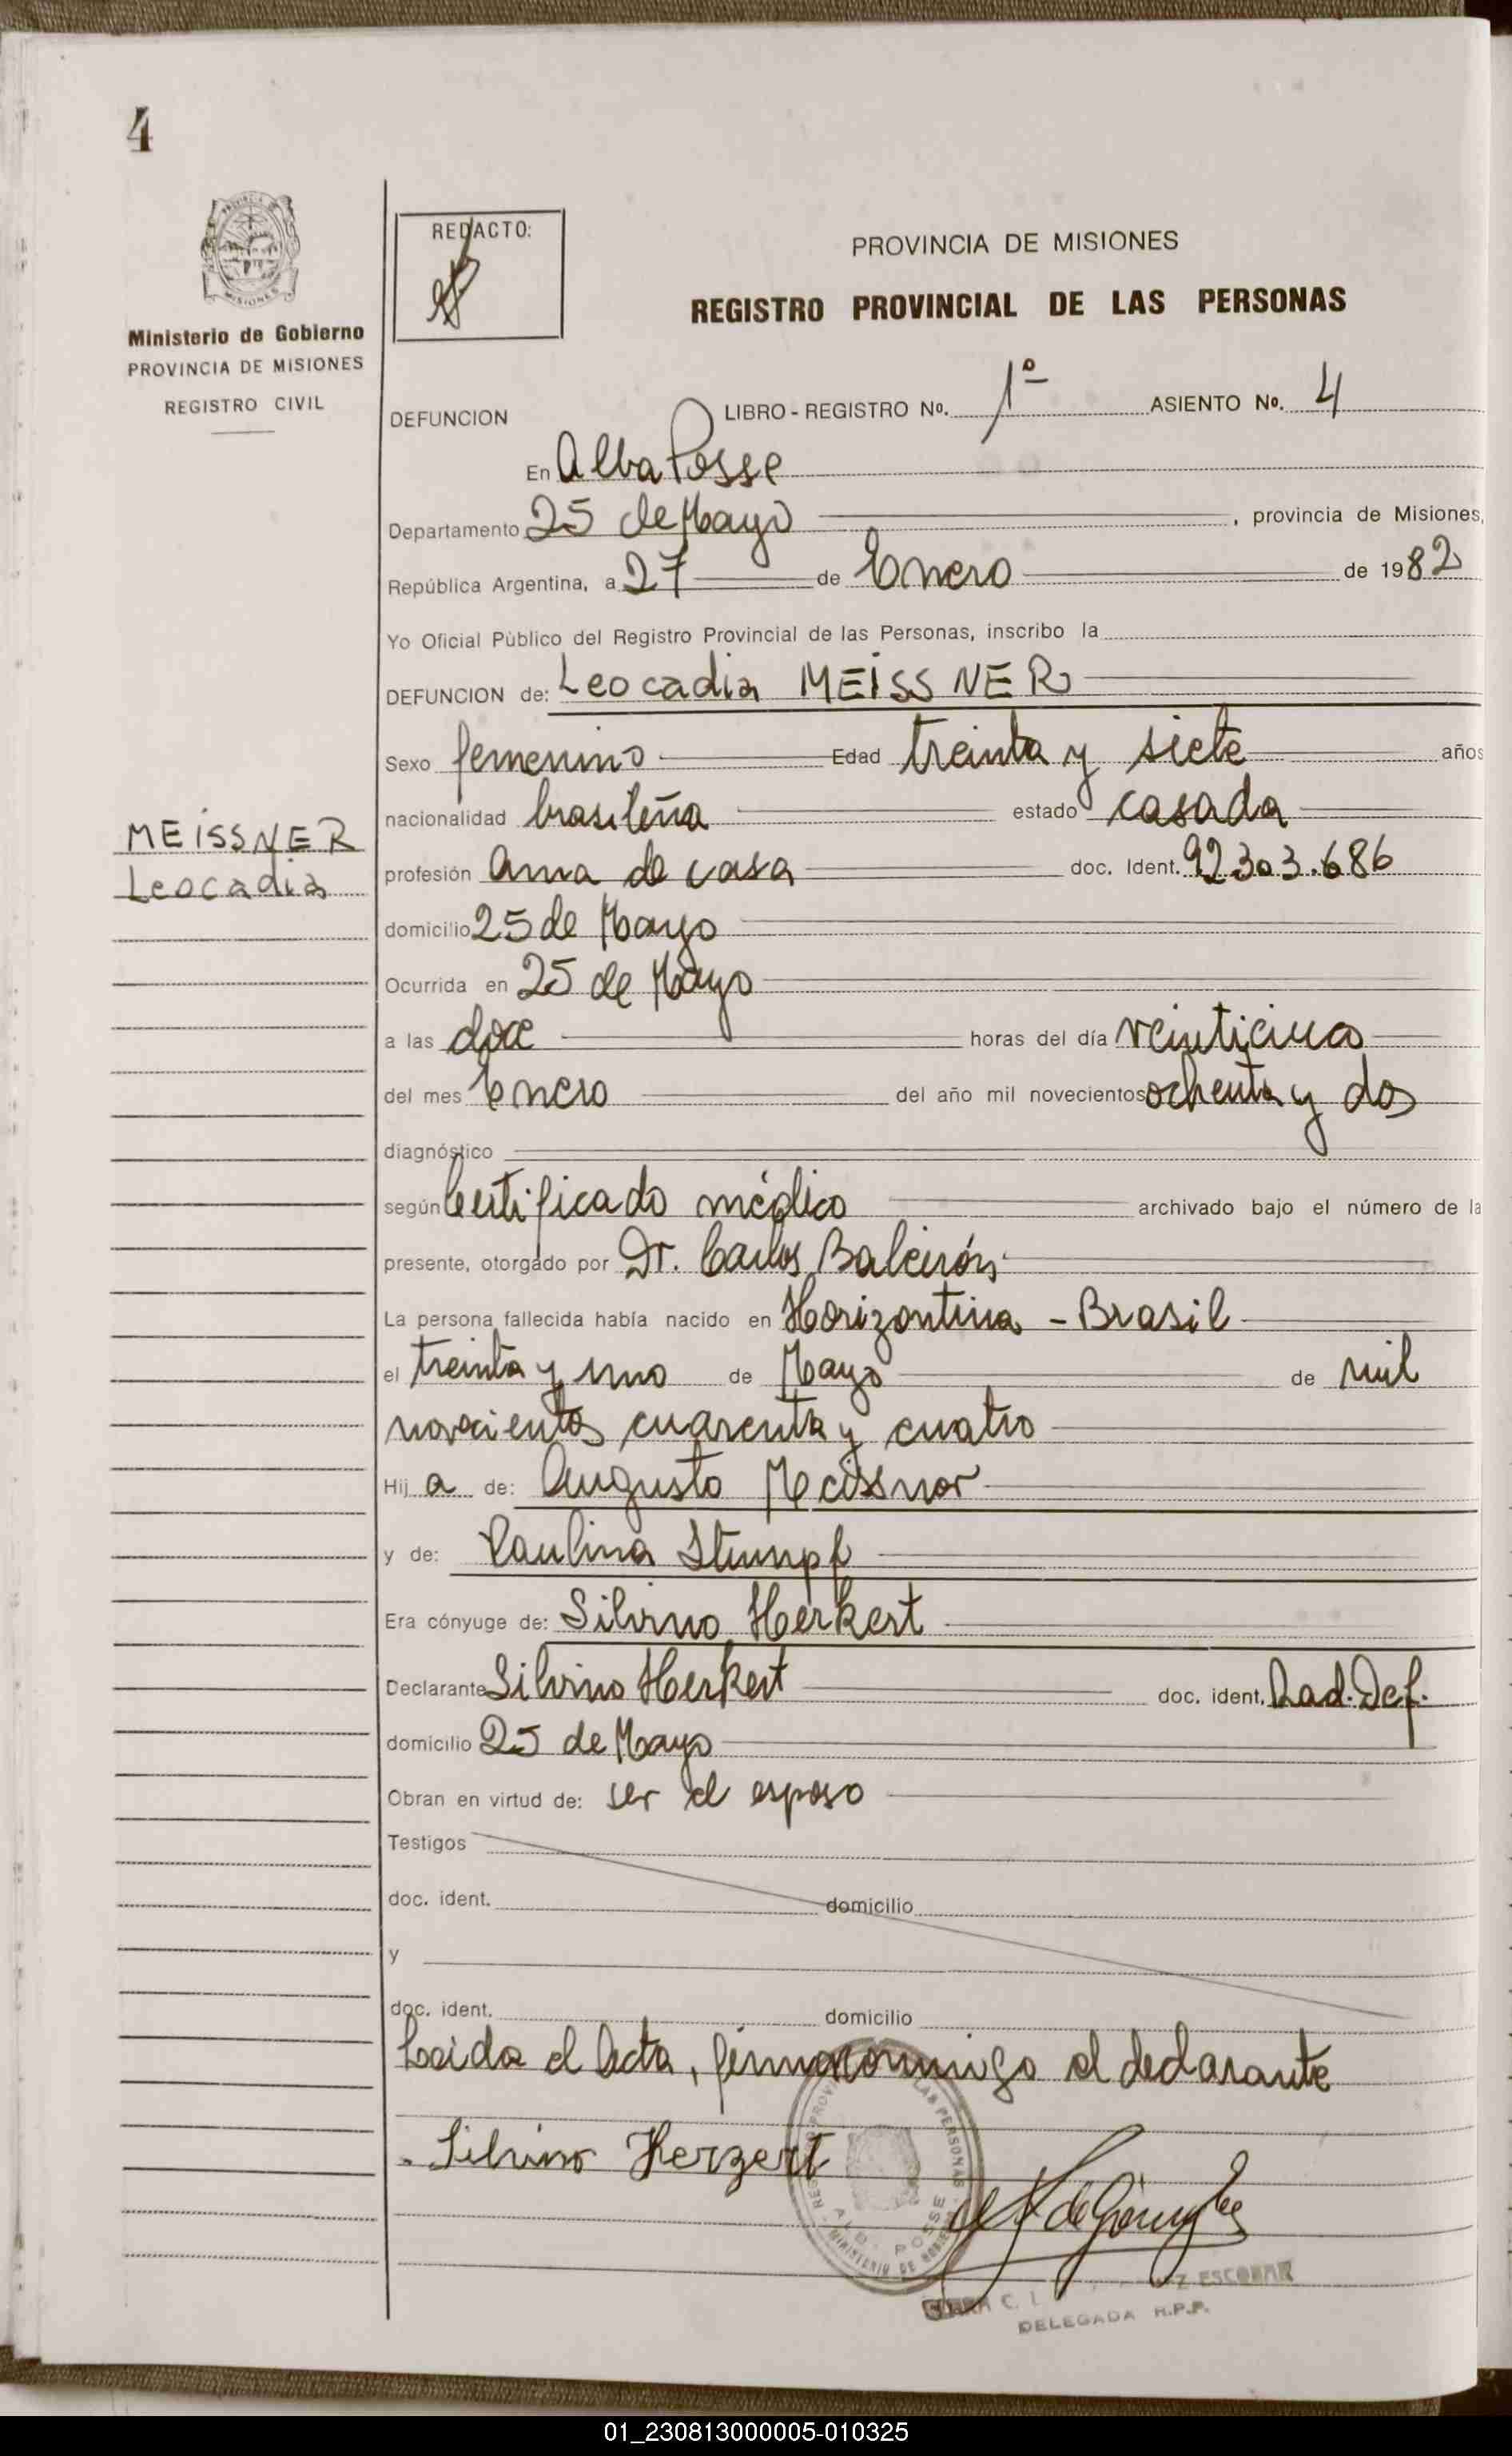 4
REDACTO:
PROVINCIA DE MISIONES
REGISTRO PROVINCIAL DE LAS PERSONAS
MISIONES
Ministerio de Gobierno
PROVINCIA DE MISIONES
REGISTRO CIVIL
DEFUNCION LIBRO - REGISTRO No. 1º ASIENTO No. 4
En Alba Posse
Departamento 25 de Mayo , provincia de Misiones,
República Argentina, a 27 de Enero de 1982
Yo Oficial Público del Registro Provincial de las Personas, inscribo la
DEFUNCION de: Leocadia MEISSNER
Sexo femenino Edad treinta y siete años
nacionalidad brasileña estado casada
MEISSNER
Leocadia
profesión ama de casa doc. Ident. 92.303.686
domicilio 25 de Mayo
Ocurrida en 25 de Mayo
a las doce horas del día veinticinco
del mes Enero del año mil novecientos ochenta y dos
diagnóstico
según Certificado médico archivado bajo el número de la
presente, otorgado por Dr. Carlos
La persona fallecida había nacido en Horizontina - Brasil
el treinta y uno de Mayo de mil
novecientos cuarenta y cuatro
Hij a de: Augusto Meissner
y de: Paulina Stumpf
Era cónyuge de: Silvino Herkert
Declarante Silvino Herkert doc. ident. Rad. Def.
domicilio 25 de Mayo
Obran en virtud de: ser el esposo
Testigos
doc. ident. domicilio
y
doc. ident. domicilio
Leida el Acta, firma conmigo el declarante
Silvino Herzert
LAS PERSONAS
POSSE
MINISTERIO DE
ESCOBAR
DELEGADA R.P.P.
01_230813000005-010325